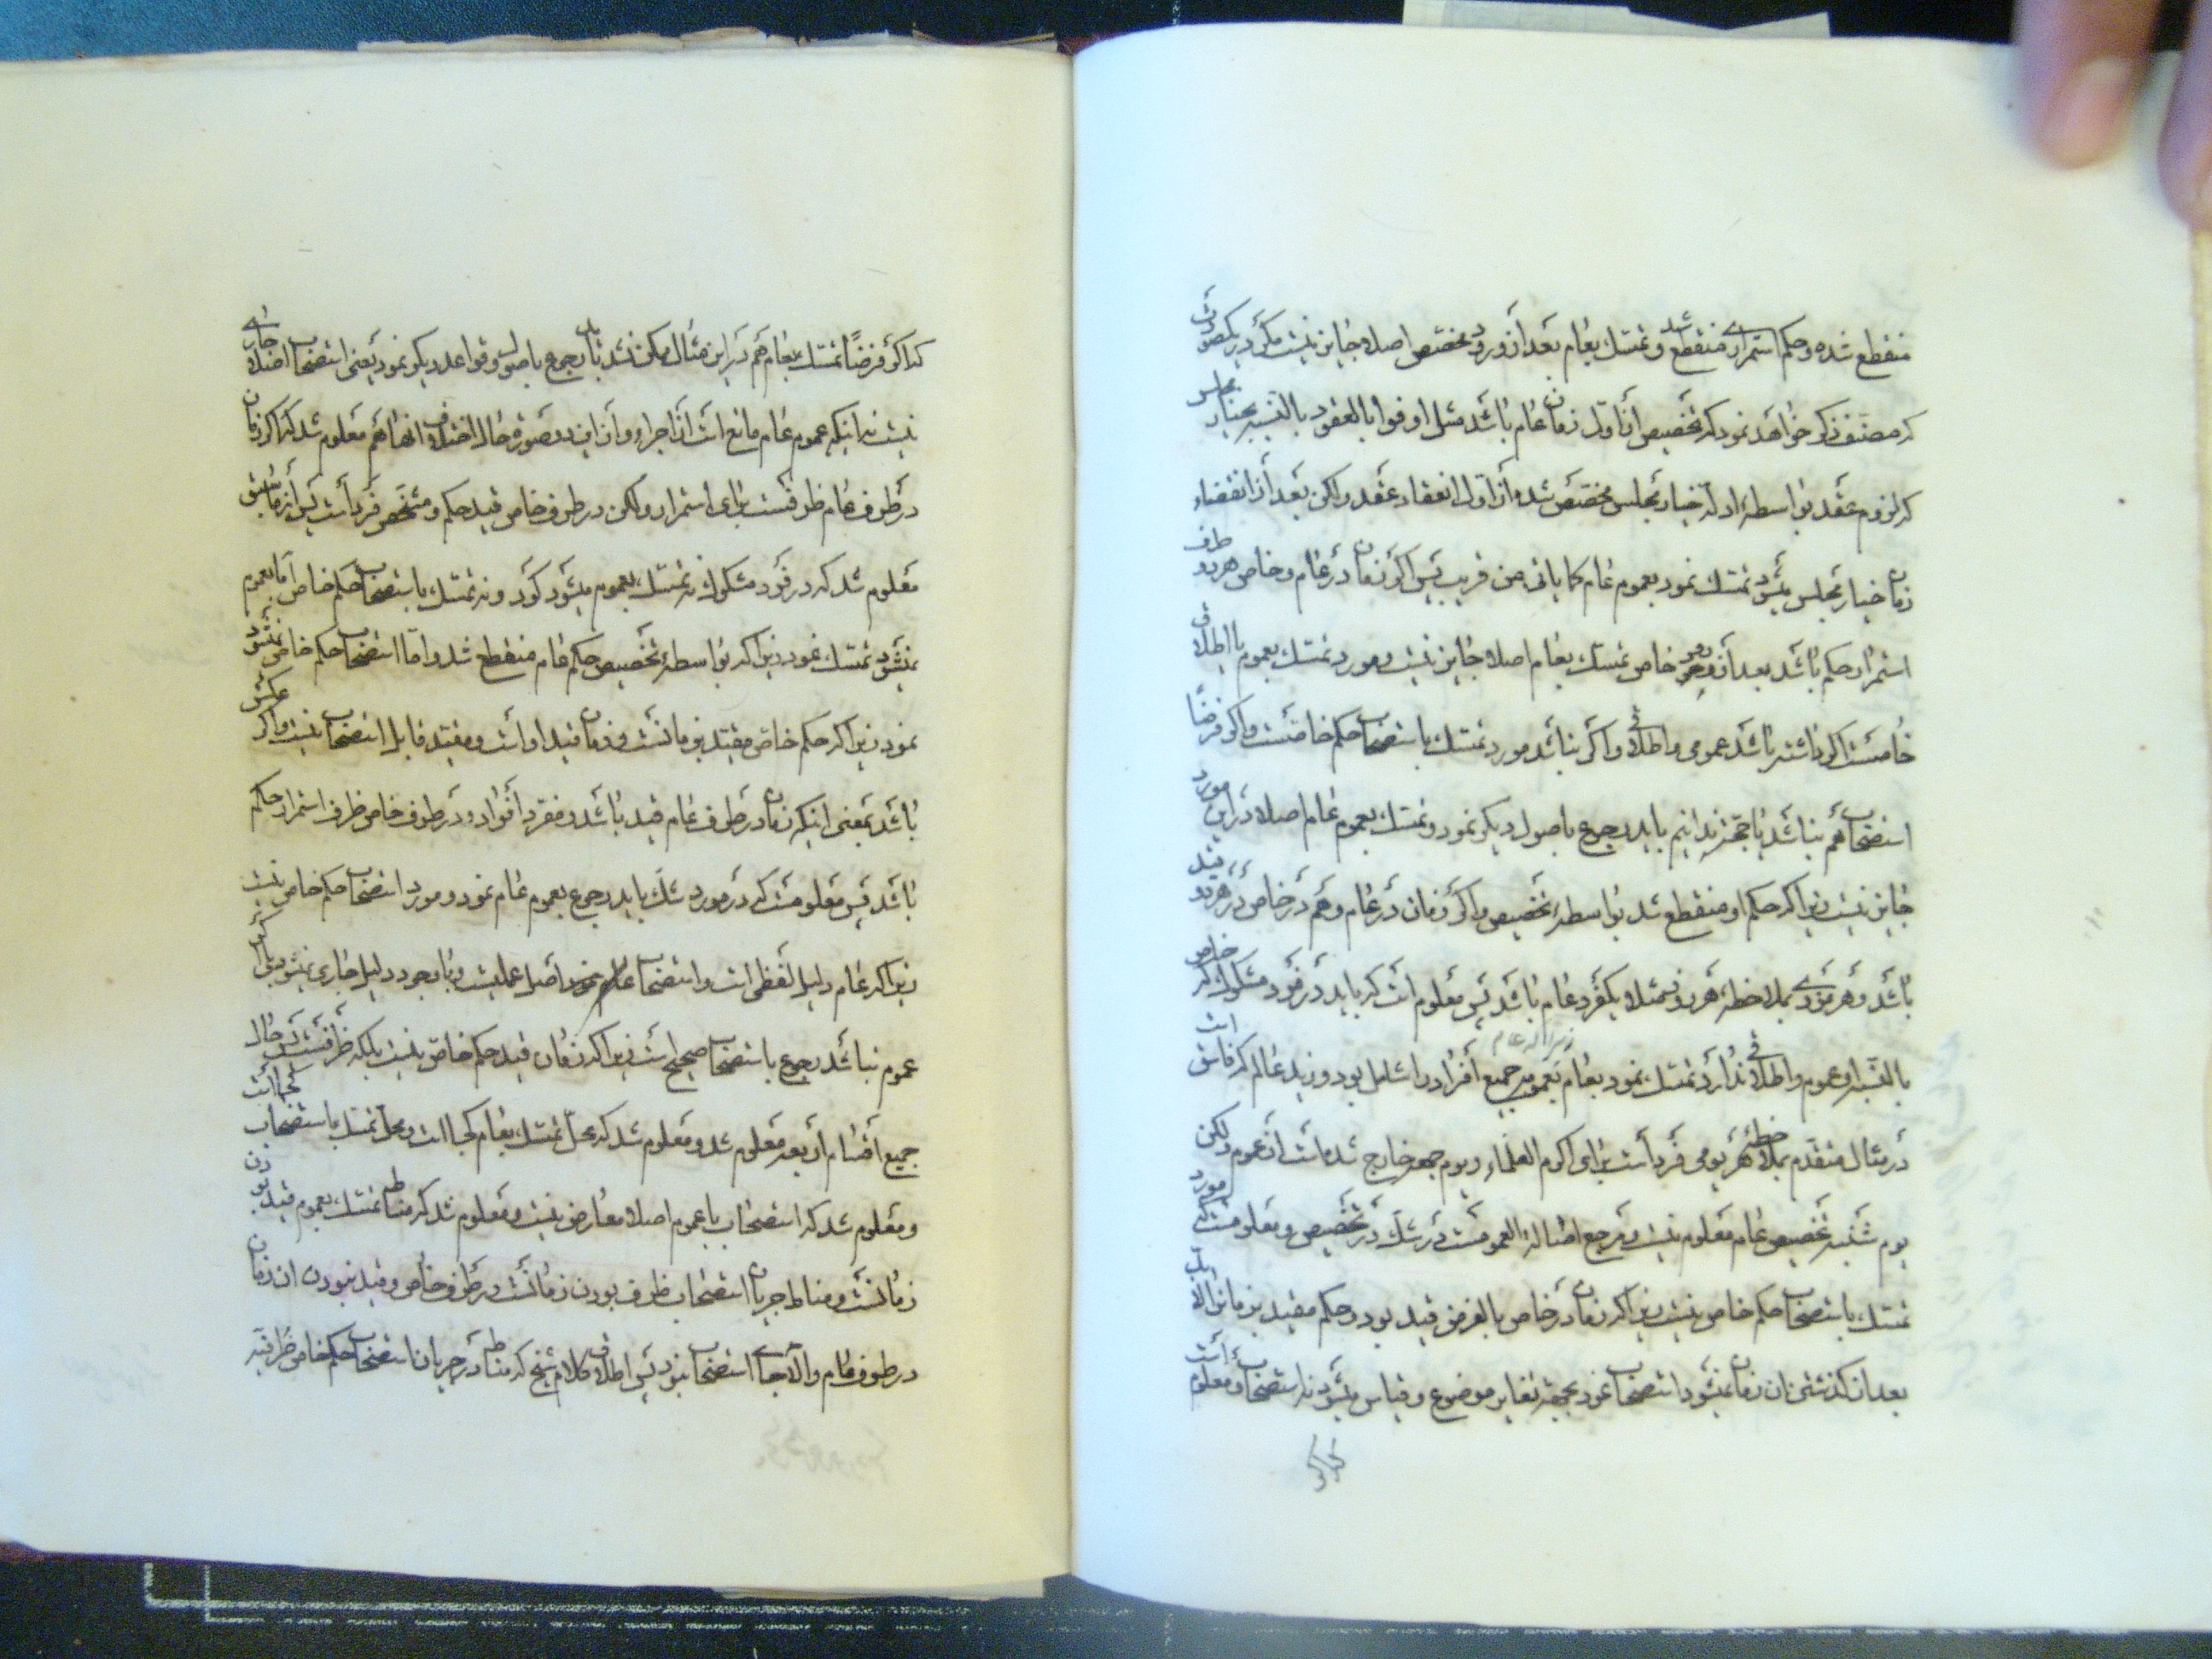 منقطع شده و حکم استمراری منقطع شد و تمسک بعام بعد از ورود مخصص اصلا جایز نیست مگر در یکصورت
که مصنف ذکر خواهد نمود که تخصیص از اول زمان عام باشد مثل اوفوا بالعقود بالنسبه بخیار مجلس
که لزوم عقد بواسطهٔ ادلهٔ خیار مجلس مخصص شده از اول انعقاد عقد ولکن بعد از انقضاء
زمان خیار مجلس میشود تمسک نمود بعموم عام کما یاتی عن قریب پس اگر زمان در عام و خاص هر دو ظرف
استمرار حکم باشد بعد از ورود خاص تمسک بعام اصلا جایز نیست و مورد تمسک بعموم یا اطلاق
خاصست اگر داشته باشد عمومی و اطلاقی و اگر نباشد مورد تمسک باستصحاب حکم خاصست و اگر فرضاً
استصحاب هم نباشد یا حجة ندانیم باید رجوع باصول دیگر نمود و تمسک بعموم عام اصلا در این مورد
جایز نیست زیرا که حکم او منقطع شد بواسطهٔ تخصیص و اگر زمان در عام و هم در خاص در هر دو قید
باشد و هر فردی بملاحظهٔ هر روز مثلا یکفرد عام باشد پس معلوم است که باید در فرد مشکوک که خاص
بالنسبه باو عموم و اطلاقی ندارد تمسک نمود بعام زیرا که عام بعمومه جمیع افراد را شامل بود و زید عالم که فاسق است
در مثال متقدم بملاحظهٔ هر یومی فرد است برای اکرم العلماء و یوم جمعه خارج شده است از عموم ولکن
یوم شنبه تخصیص عام معلوم نیست و مرجع اصالة العمومست در شک در تخصیص و معلومست که مورد
تمسک باستصحاب حکم خاص نیست زیرا که زمان در خاص بالفرض قید بود و حکم مقید بزمان را
بعد از گذشتن ان زمان نمیشود استصحاب نمود بجهة تغایر موضوع و قیاس میشود نه استصحاب و معلوم است
که اگر
که اگر فرضاً تمسک بعام هم در این مثال ممکن نشد باید رجوع باصول و قواعد دیگر نمود یعنی استصحاب اصلا جاری
نیست نه اینکه عموم عام مانع است از اجراء و از این دو صورة حال اختلاف انها هم معلوم شد که اگر زمان
در طرف عام ظرفست برای استمرار ولکن در طرف خاص قید حکم و مشخص فرد است پس از ما سبق
معلوم شد که در فرد مشکوک نه تمسک بعموم میشود کرد و نه تمسک باستصحاب حکم خاص اما بعموم
نمیشود تمسک نمود زیرا که بواسطهٔ تخصیص حکم عام منقطع شد و اما استصحاب حکم خاص نمیشود
نمود زیرا که حکم خاص مقید بزمانست و زمان قید او است و مقید قابل استصحاب نیست و اگر عکس
باشد بمعنی اینکه زمان در طرف عام قید باشد و مفرد افراد و در طرف خاص ظرف استمرار حکم
باشد پس معلومست که در مورد شک باید رجوع بعموم عام نمود و مورد استصحاب حکم خاص نیست
زیرا که عام دلیل لفظی است و استصحاب اصل عملیست و با وجود دلیل جاری نمیشود بلی اگر
عموم نباشد رجوع باستصحاب صحیح است زیرا که زمان قید حکم خاص نیست بلکه ظرفست پس حال
جمیع اقسام اربعه معلوم شد و معلوم شد که محل تمسک بعام کجا است و محل تمسک باستصحاب کجا است
و معلوم شد که استصحاب با عموم اصلا معارض نیست و معلوم شد که مناط تمسک بعموم قید بودن
زمانست و مناط جریان استصحاب ظرف بودن زمانست در طرف خاص و قید نبودن ان زمان
در طرف عام والا جای استصحاب نبود پس اطلاق کلام شیخ که مناط در جریان استصحاب حکم خاص ظرفیة